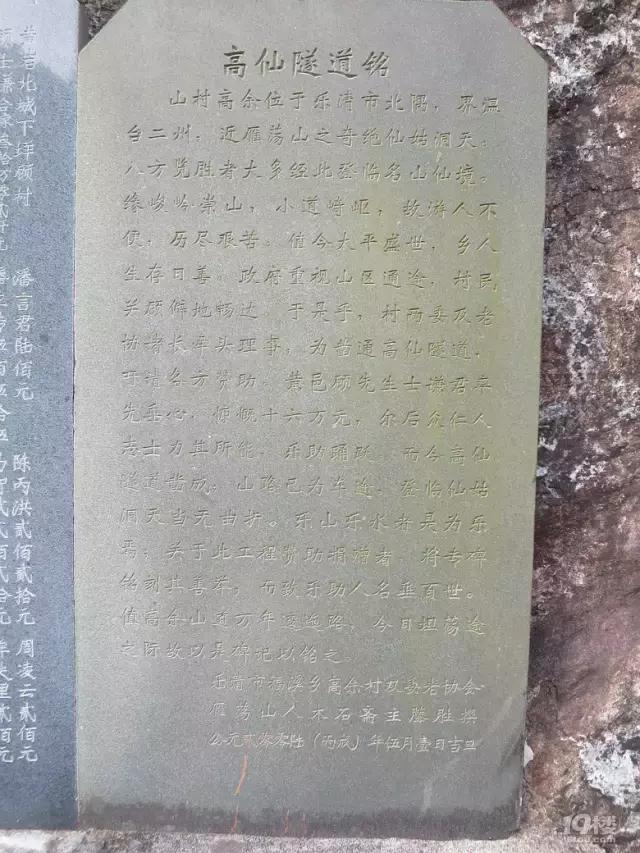 高仙隧道铭
山村高余位于乐清市北隅，界温
台二州，近雁荡山之奇绝仙姑洞天。
八方览胜者大多经此登临名山仙境。
缘峻岭崇山，小道崎岖，故游人不
便，历尽艰苦。值今太平盛世，乡人
生存日善。政府重视山区通途，村民
关顾僻地畅达。于是乎，村两委及老
协诸长牵头理事，为凿通高仙隧道，
吁请各方赞助。黄邑顾先生士谦君率
先垂心，慷慨十六万元，尔后众仁人
志士力其所能，乐助踊跃。而今高仙
隧道凿成，山路已为车途，登临仙姑
洞天当无曲步。乐山乐水者是为乐
焉。关于此工程赞助捐赠者，将专碑
铭刻其善举，而致乐助人名垂百世。
值高余山道万年逶迤路，今日坦荡途
之际故以是碑记以铭之。
乐清市福溪乡高余村双委老协会
雁荡山人木石斋主滕胜撰
公元贰零零陆（丙戌）年伍月壹日吉旦
黄岩北城下垟顾村 潘言君陆佰元 陈丙洪贰佰贰拾元 周凌云贰佰元
19楼